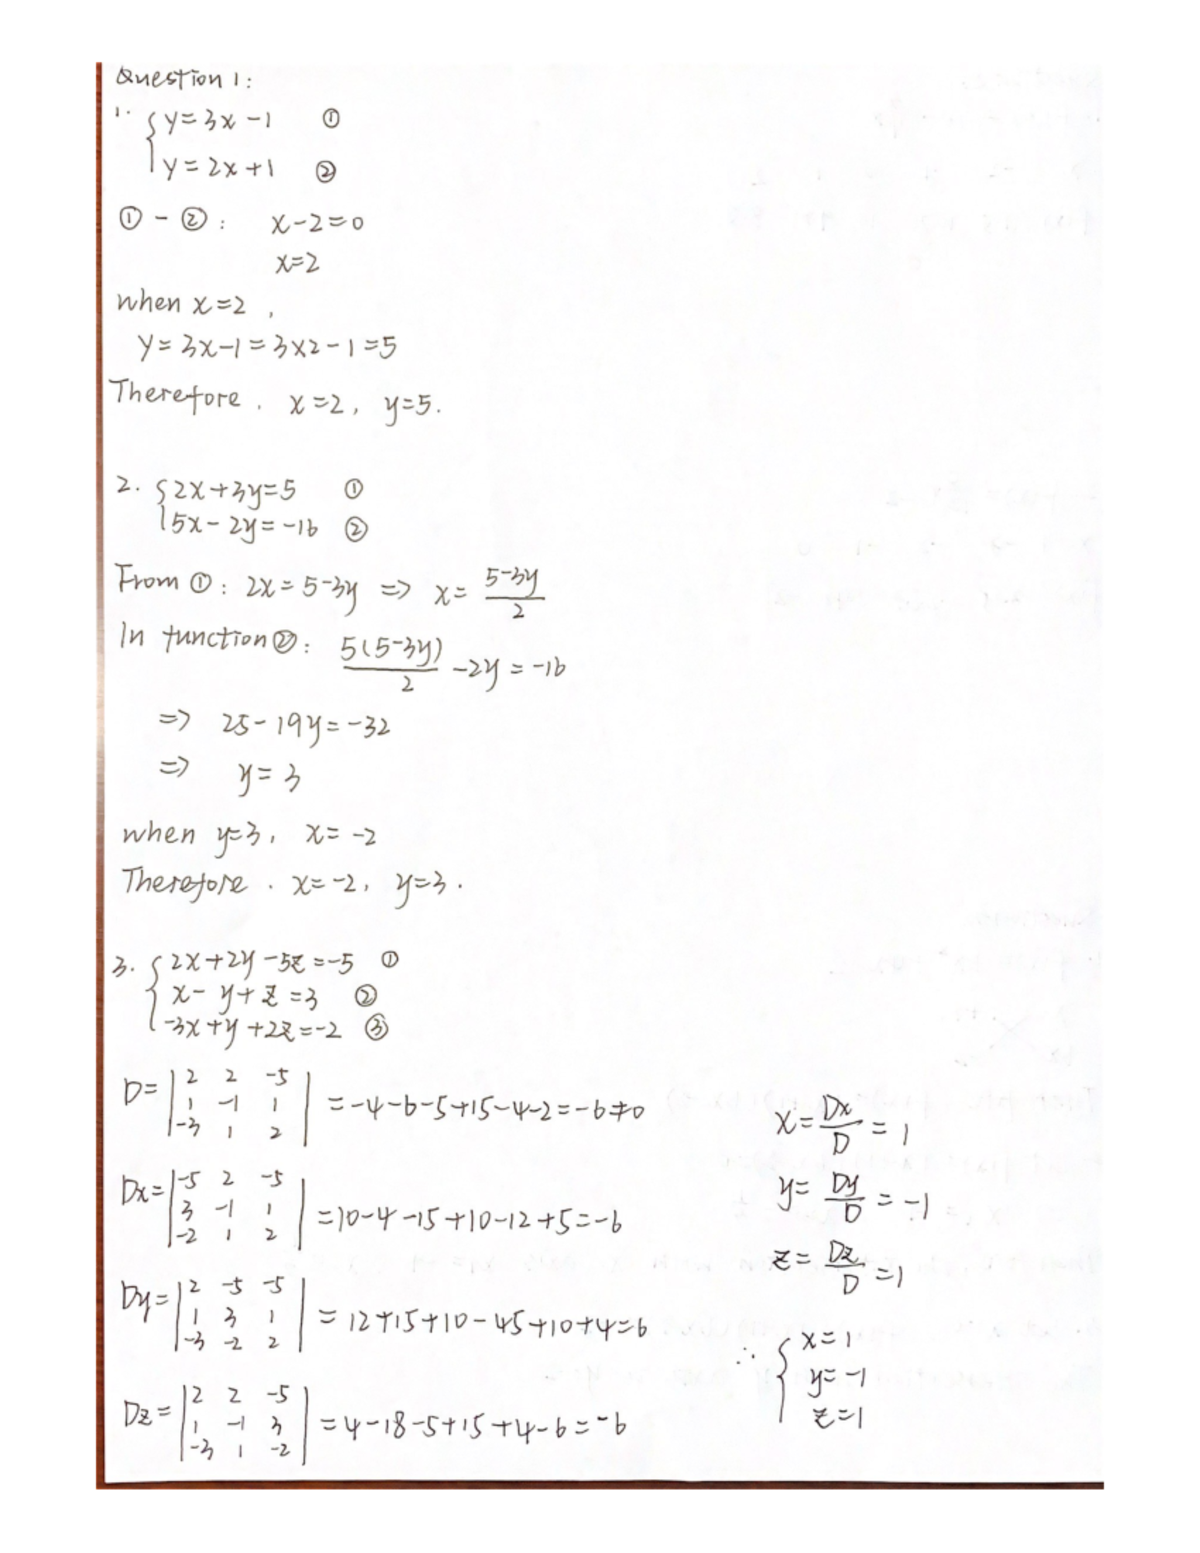 Question 1:
1. { y=3x-1 ①
y=2x+1 ②
①-②: x-2=0
x=2
when x=2,
y=3x-1=3×2-1=5
Therefore. x=2, y=5.
2. { 2x+3y=5 ①
5x-2y=-16 ②
From ①: 2x=5-3y => x= (5-3y)/2
In function②: 5(5-3y)/2 -2y=-16
=> 25-19y=-32
=> y=3
when y=3, x=-2
Therefore. x=-2, y=3.
3. { 2x+2y-5z=-5 ①
x-y+z=3 ②
-3x+y+2z=-2 ③
D= | 2 2 -5 |
| 1 -1 1 | =-4-6-5+15-4-2=-6≠0
| -3 1 2 |
Dx= | -5 2 -5 |
| 3 -1 1 | =10-4-15+10-12+5=-6
| -2 1 2 |
Dy= | 2 -5 -5 |
| 1 3 1 | =12+15+10-45+10+4=6
| -3 -2 2 |
Dz= | 2 2 -5 |
| 1 -1 3 | =4-18-5+15+4-6=-6
| -3 1 -2 |
x= Dx/D =1
y= Dy/D =-1
z= Dz/D =1
∴ { x=1
y=-1
z=1